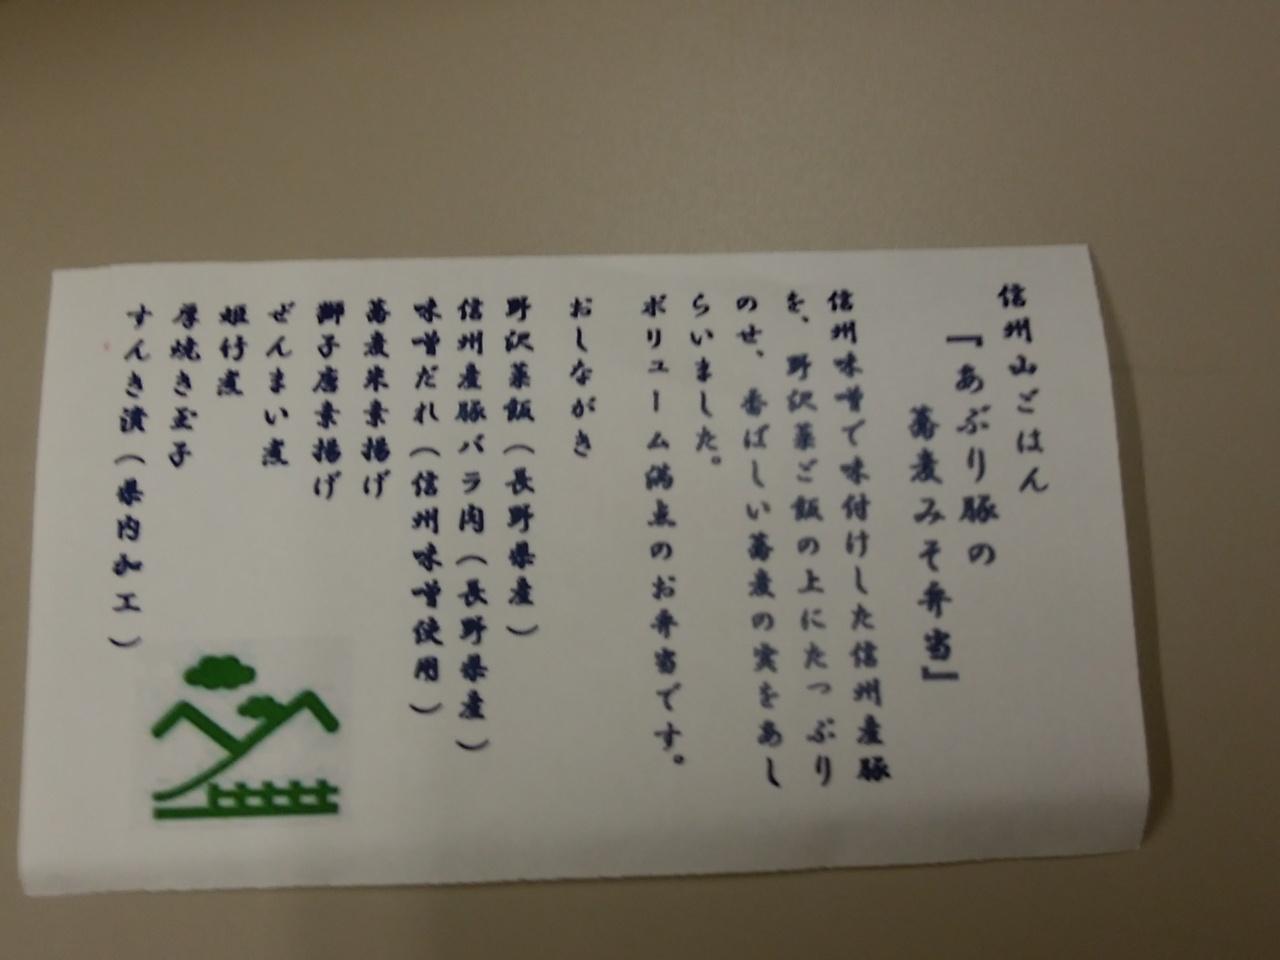 信州山ごはん
『あぶり豚の
蕎麦みそ弁当』
信州味噌で味付けした信州産豚
を、野沢菜ご飯の上にたっぷり
のせ、香ばしい蕎麦の実をあし
らいました。
ボリューム満点のお弁当です。
おしながき
野沢菜飯（長野県産）
信州産豚バラ肉（長野県産）
味噌だれ（信州味噌使用）
蕎麦米素揚げ
獅子唐素揚げ
ぜんまい煮
姫竹煮
厚焼き玉子
すんき漬（県内加工）